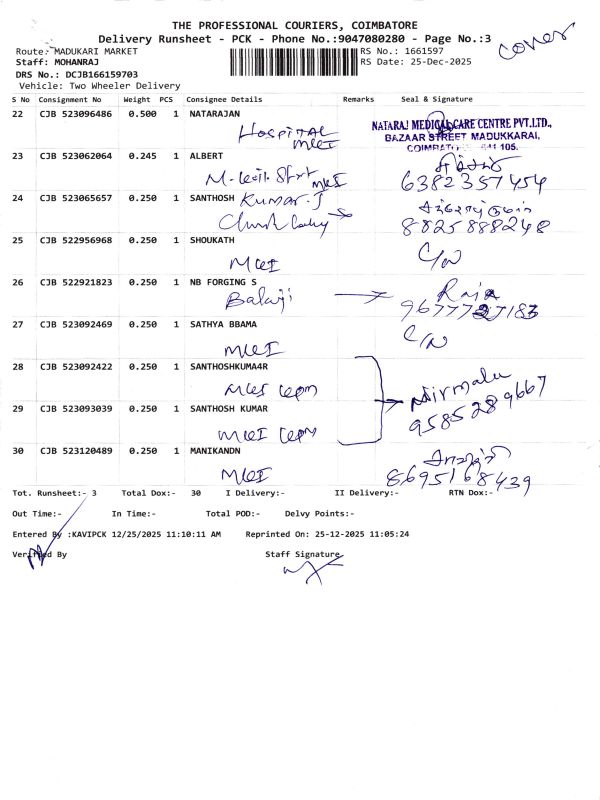 THE PROFESSIONAL COURIERS, COIMBATORE
Delivery Runsheet - PCK - Phone No.:9047080280 - Page No.:3
cover
Route: MADUKARI MARKET
RS No.: 1661597
Staff: MOHANRAJ
RS Date: 25-Dec-2025
DRS No.: DCJB166159703
Vehicle: Two Wheeler Delivery
S No Consignment No Weight PCS Consignee Details Remarks Seal & Signature
22 CJB 523096486 0.500 1 NATARAJAN
HOSPITAL
NATARAJ MEDICAL CARE CENTRE PVT.LTD.,
BAZAAR STREET MADUKKARAI,
105.
23 CJB 523062064 0.245 1 ALBERT
6382357454
24 CJB 523065657 0.250 1 SANTHOSH Kumar. J
8825888248
25 CJB 522956968 0.250 1 SHOUKATH
C/N
26 CJB 522921823 0.250 1 NB FORGING S
Balaji
Raja
27 CJB 523092469 0.250 1 SATHYA BBAMA
C/N
28 CJB 523092422 0.250 1 SANTHOSHKUMA4R
Nirmala
9585289667
29 CJB 523093039 0.250 1 SANTHOSH KUMAR
30 CJB 523120489 0.250 1 MANIKANDN
8695168439
Tot. Runsheet:- 3 Total Dox:- 30 I Delivery:- II Delivery:- RTN Dox:-
Out Time:- In Time:- Total POD:- Delvy Points:-
Entered By :KAVIPCK 12/25/2025 11:10:11 AM Reprinted On: 25-12-2025 11:05:24
Verified By Staff Signature